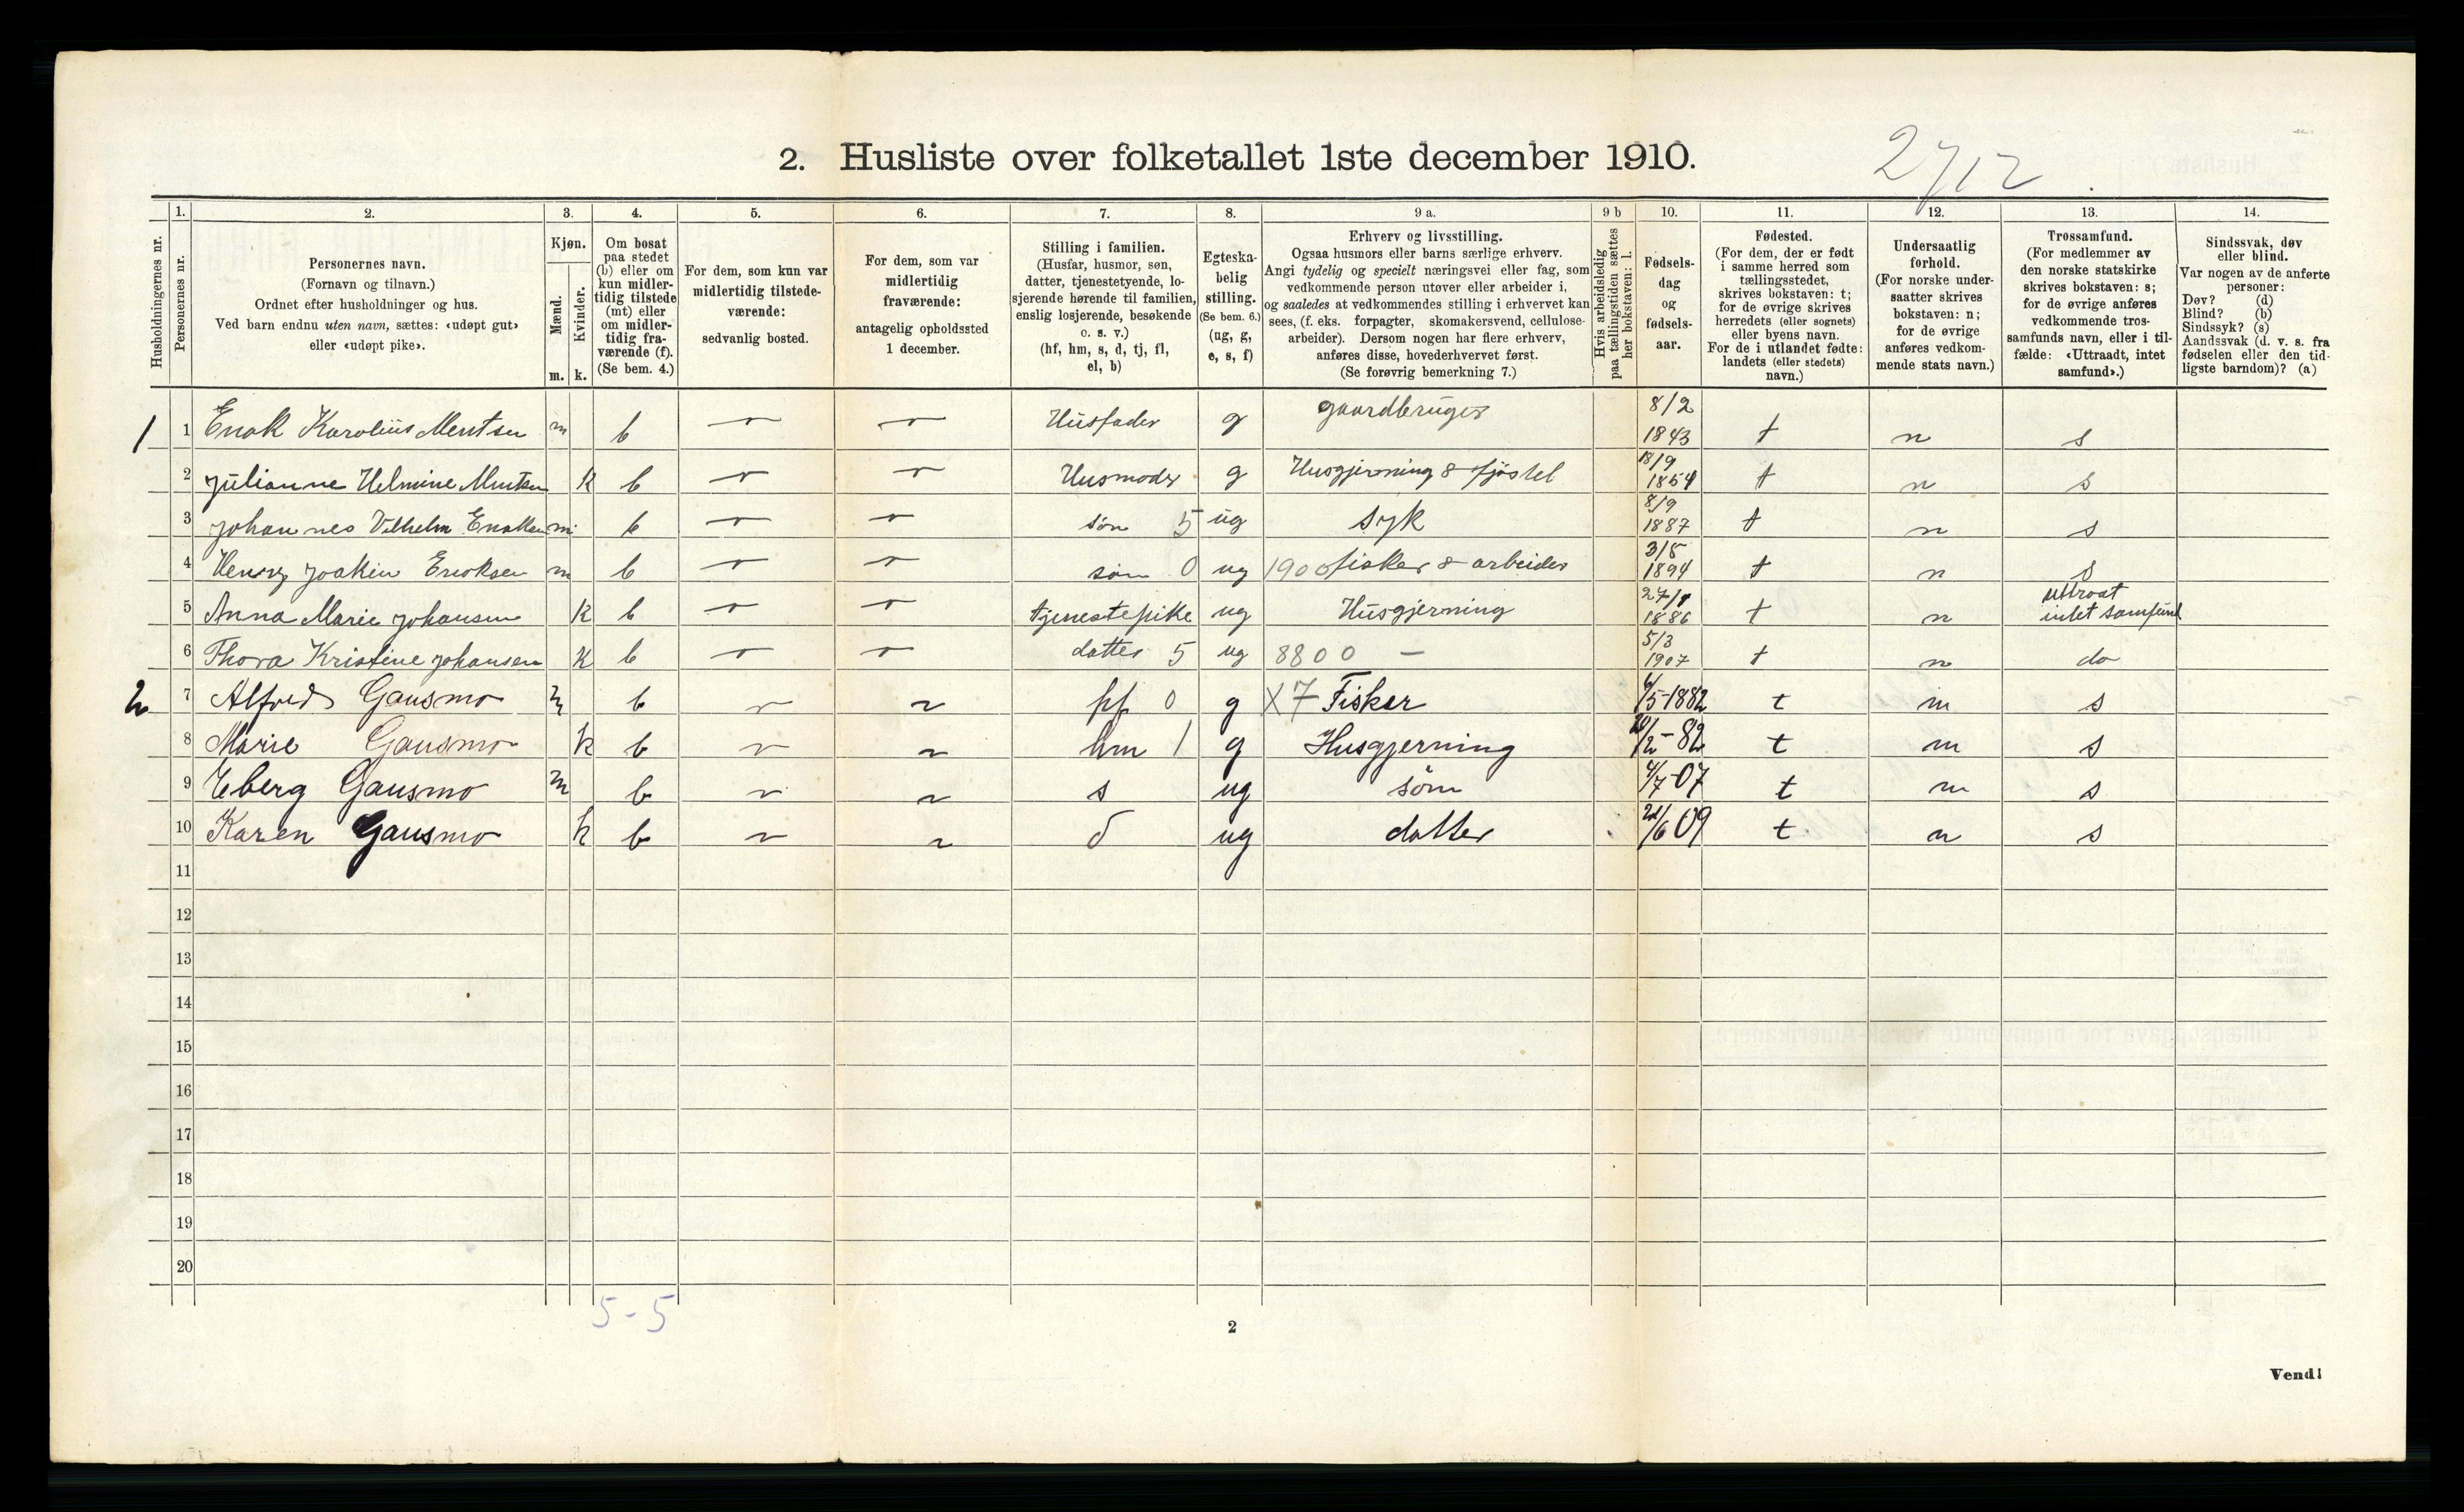 2712
2. Husliste over folketallet 1ste december 1910.
Husholdningernes nr.
1.
Personernes nr.
2.
Personernes navn.
(Fornavn og tilnavn.)
Ordnet efter husholdninger og hus.
Ved barn endnu uten navn, sættes: «udøpt gut»
eller «udøpt pike».
3.
Kjøn.
Mænd.
Kvinder.
m. k.
4.
Om bosat
paa stedet
(b) eller om
kun midler-
tidig tilstede
(mt) eller
om midler-
tidig fra-
værende (f).
(Se bem. 4.)
5.
For dem, som kun var
midlertidig tilstede-
værende:
sedvanlig bosted.
6.
For dem, som var
midlertidig
fraværende:
antagelig opholdssted
1 december.
7.
Stilling i familien.
(Husfar, husmor, søn,
datter, tjenestetyende, lo-
sjerende hørende til familien,
enslig losjerende, besøkende
o. s. v.)
(hf, hm, s, d, tj, fl,
el, b)
8.
Egteska-
belig
stilling.
(Se bem. 6.)
(ug, g,
e, s, f)
9 a.
Erhverv og livsstilling.
Ogsaa husmors eller barns særlige erhverv.
Angi tydelig og specielt næringsvei eller fag, som
vedkommende person utøver eller arbeider i,
og saaledes at vedkommendes stilling i erhvervet kan
sees, (f. eks. forpagter, skomakersvend, cellulose-
arbeider). Dersom nogen har flere erhverv,
anføres disse, hovederhvervet først.
(Se forøvrig bemerkning 7.)
9 b
Hvis arbeidsledig
paa tællingstiden sættes
her bokstaven: l.
10.
Fødsels-
dag
og
fødsels-
aar.
11.
Fødested.
(For dem, der er født
i samme herred som
tællingsstedet,
skrives bokstaven: t;
for de øvrige skrives
herredets (eller sognets)
eller byens navn.
For de i utlandet fødte:
landets (eller stedets)
navn.)
12.
Undersaatlig
forhold.
(For norske under-
saatter skrives
bokstaven: n;
for de øvrige
anføres vedkom-
mende stats navn.)
13.
Trossamfund.
(For medlemmer av
den norske statskirke
skrives bokstaven: s;
for de øvrige anføres
vedkommende tros-
samfunds navn, eller i til-
fælde: «Uttraadt, intet
samfund».)
14.
Sindssvak, døv
eller blind.
Var nogen av de anførte
personer:
Døv? (d)
Blind? (b)
Sindssyk? (s)
Aandssvak (d. v. s. fra
fødselen eller den tid-
ligste barndom)? (a)
1 1 Enok Karolius Mentsen m b Husfader g gaardbruger 8/2 1843 t n s
2 Julianne Helmine Mentsen k b Husmoder g Husgjerning & fjøstel 18/9 1854 t n s
3 Johannes Vilhelm Enoksen m b søn 5 ug syk 8/9 1887 t n s
4 Henry Joakim Enoksen m b søn 0 ug 1900 fisker & arbeider 3/5 1894 t n s
5 Anna Marie Johansen k b tjenestepike ug Husgjerning 27/1 1886 t n uttraat intet samfund
6 Thora Kristine Johansen k b datter 5 ug 8800 – 5/3 1907 t n do
2 7 Alfred Gausmo m b hf 0 g X7 Fisker 6/5-1882 t n s
8 Marie Gausmo k b hm 1 g Husgjerning /2-82 t n s
9 Eberg Gausmo m b s ug søm 4/7-07 t n s
10 Karen Gausmo k b d ug datter 21/6 09 t n s
11
12
13
14
15
16
17
18
19
20
5-5
2
Vend!